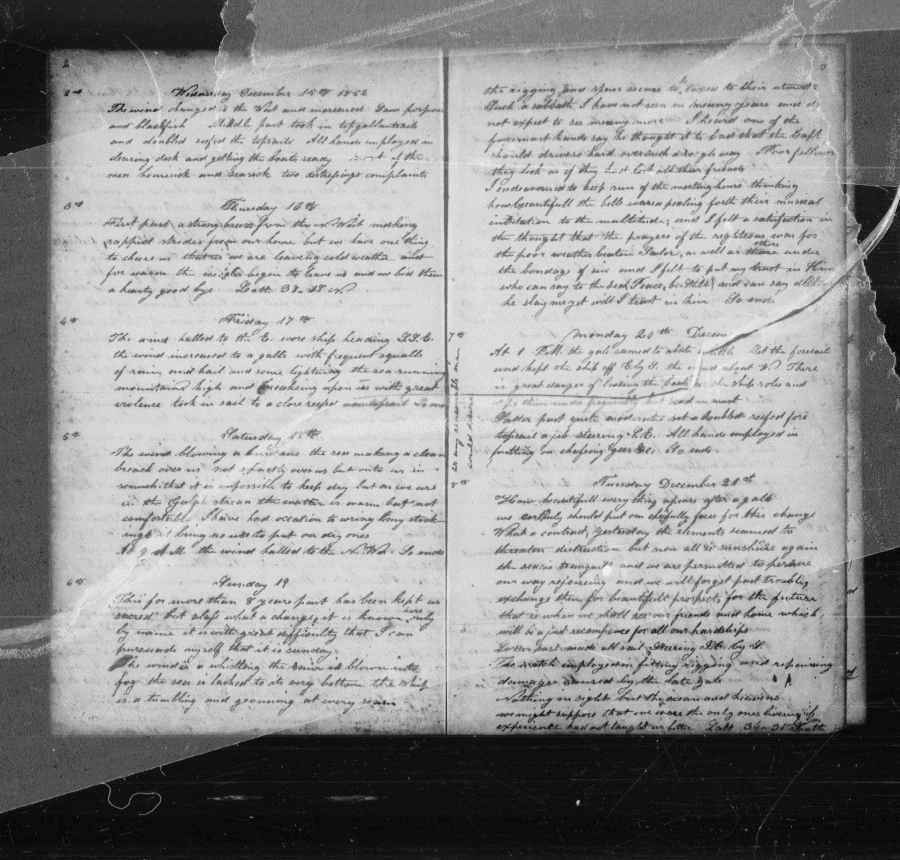 2
2nd Wednesday December 15th 1852
The wind changed to the West and increased. Saw porpoises
and blackfish Middle part took in topgallantsails
and doubled reefed the topsails All hands employed on
clearing deck and getting the boats ready most of the
men homesick and seasick two distressing complaints
3rd Thursday 16th
First part a strong breeze from the N West making
rappid strides from our home but we have one thing
to cheer us that is we are leaving cold weather and
for warm the icicles begin to leave us and we bid them
a hearty good bye Latt. 38.18 N
4th Friday 17th
The wind halled to the E. wore ship heading S.S.E.
the wind increased to a galle with frequent squalls
of rain and hail and some lightning the sea running
mountains high and breaking upon us with great
violence took in sail to a close reefed mainspail So ends
5th Saturday 18th
The wind blowing a hurricane the sea making a clean
breach over us not exactly over us but onto us in
somuch that it is impossible to keep dry but as we are
in the Gulph stream the watter is warm but not
comfortable I have had occation to wring my stock-
ings it being no use to put our dry ones
At 9 A.M. the wind halled to the N. Wd. So ends
6th Sunday 19
This for more than 8 years past has been kept as
sacred but alass what a change, it is known here only
by name it is with great difficulty that I can
perssuade myself that it is sunday.
The wind is a whistling the rain is blown into
fog the sea is lashed to its very bottom the ship
is a tumbling and groaning at every seam
the rigging and spars seems to be taxes to their utmost
Such a sabbath I have not seen in meany years and do
not expect to see meany more I heard one of the
foremast hands say he thought it to bad that the Capt
should drive so hard over such a rough way Poor fellows
they look as if they had lost all their friends
I endeavored to keep run of the meeting hours thinking
how beautifull the bells ware a pealing forth their musical
invitation to the multitude; and I felt a satisfaction in
the thought that the prayers of the righteous was for
the poor weather beaten Sailor, as well as those others under
the bondage of sin and I felt to put my trust in Him
who can say to the sea Peace, be Still; and can say altho
he slay me yet will I trust in him So ends
7th Monday 20th Decem
At 1 P.M. the gale seamed to abate a little Set the foresail
and kept the ship off E by S. the wind about W. There
is great danger of loosing the boats as the ship roles and
as any reasonable man
could desire
Latter part quite moderate set a doubled reefed fore
topsail & jib steering S.E. All hands employed in
putting on chafeing Gear &c. So ends
8th Tuesday December 21st
How beautifull every thing apears after a gale
we certinly should put on chefully faces for this change
What a contrast, yesterday the elements seamed to
threaten distruction but now all is sunshine again
the sea is tranquil and we are permitted to persue
our way rejoiceing and we will forget past troubles,
exchange them for beautifull prospects for the future
that is when we shall see our friends and home which
will be a just recompence for all our hardships
Latter part made all sail Stearing S.E. by S.
The watch employed in fitting rigging and repairing
damages caused by the late gale
Nothing in sight but the ocean and heavens
we might suppose that we ware the only ones liveing if
experience had not taught us better Latt 34=35 North